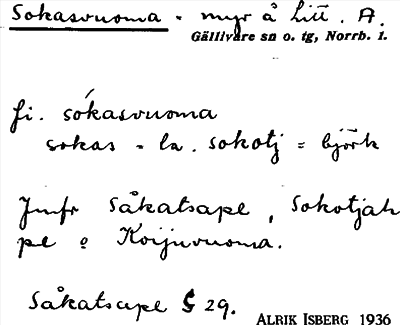 Sokasvuoma - myr å Litt. A.
Gällivare sn o. tg, Norrb. l.
fi. sókasvuoma
sokas = la. sokotj = björk
Jmfr Såkatsape, Sokotjah
pe o Koijuvuoma.
Såkatsape § 29.
ALRIK ISBERG 1936